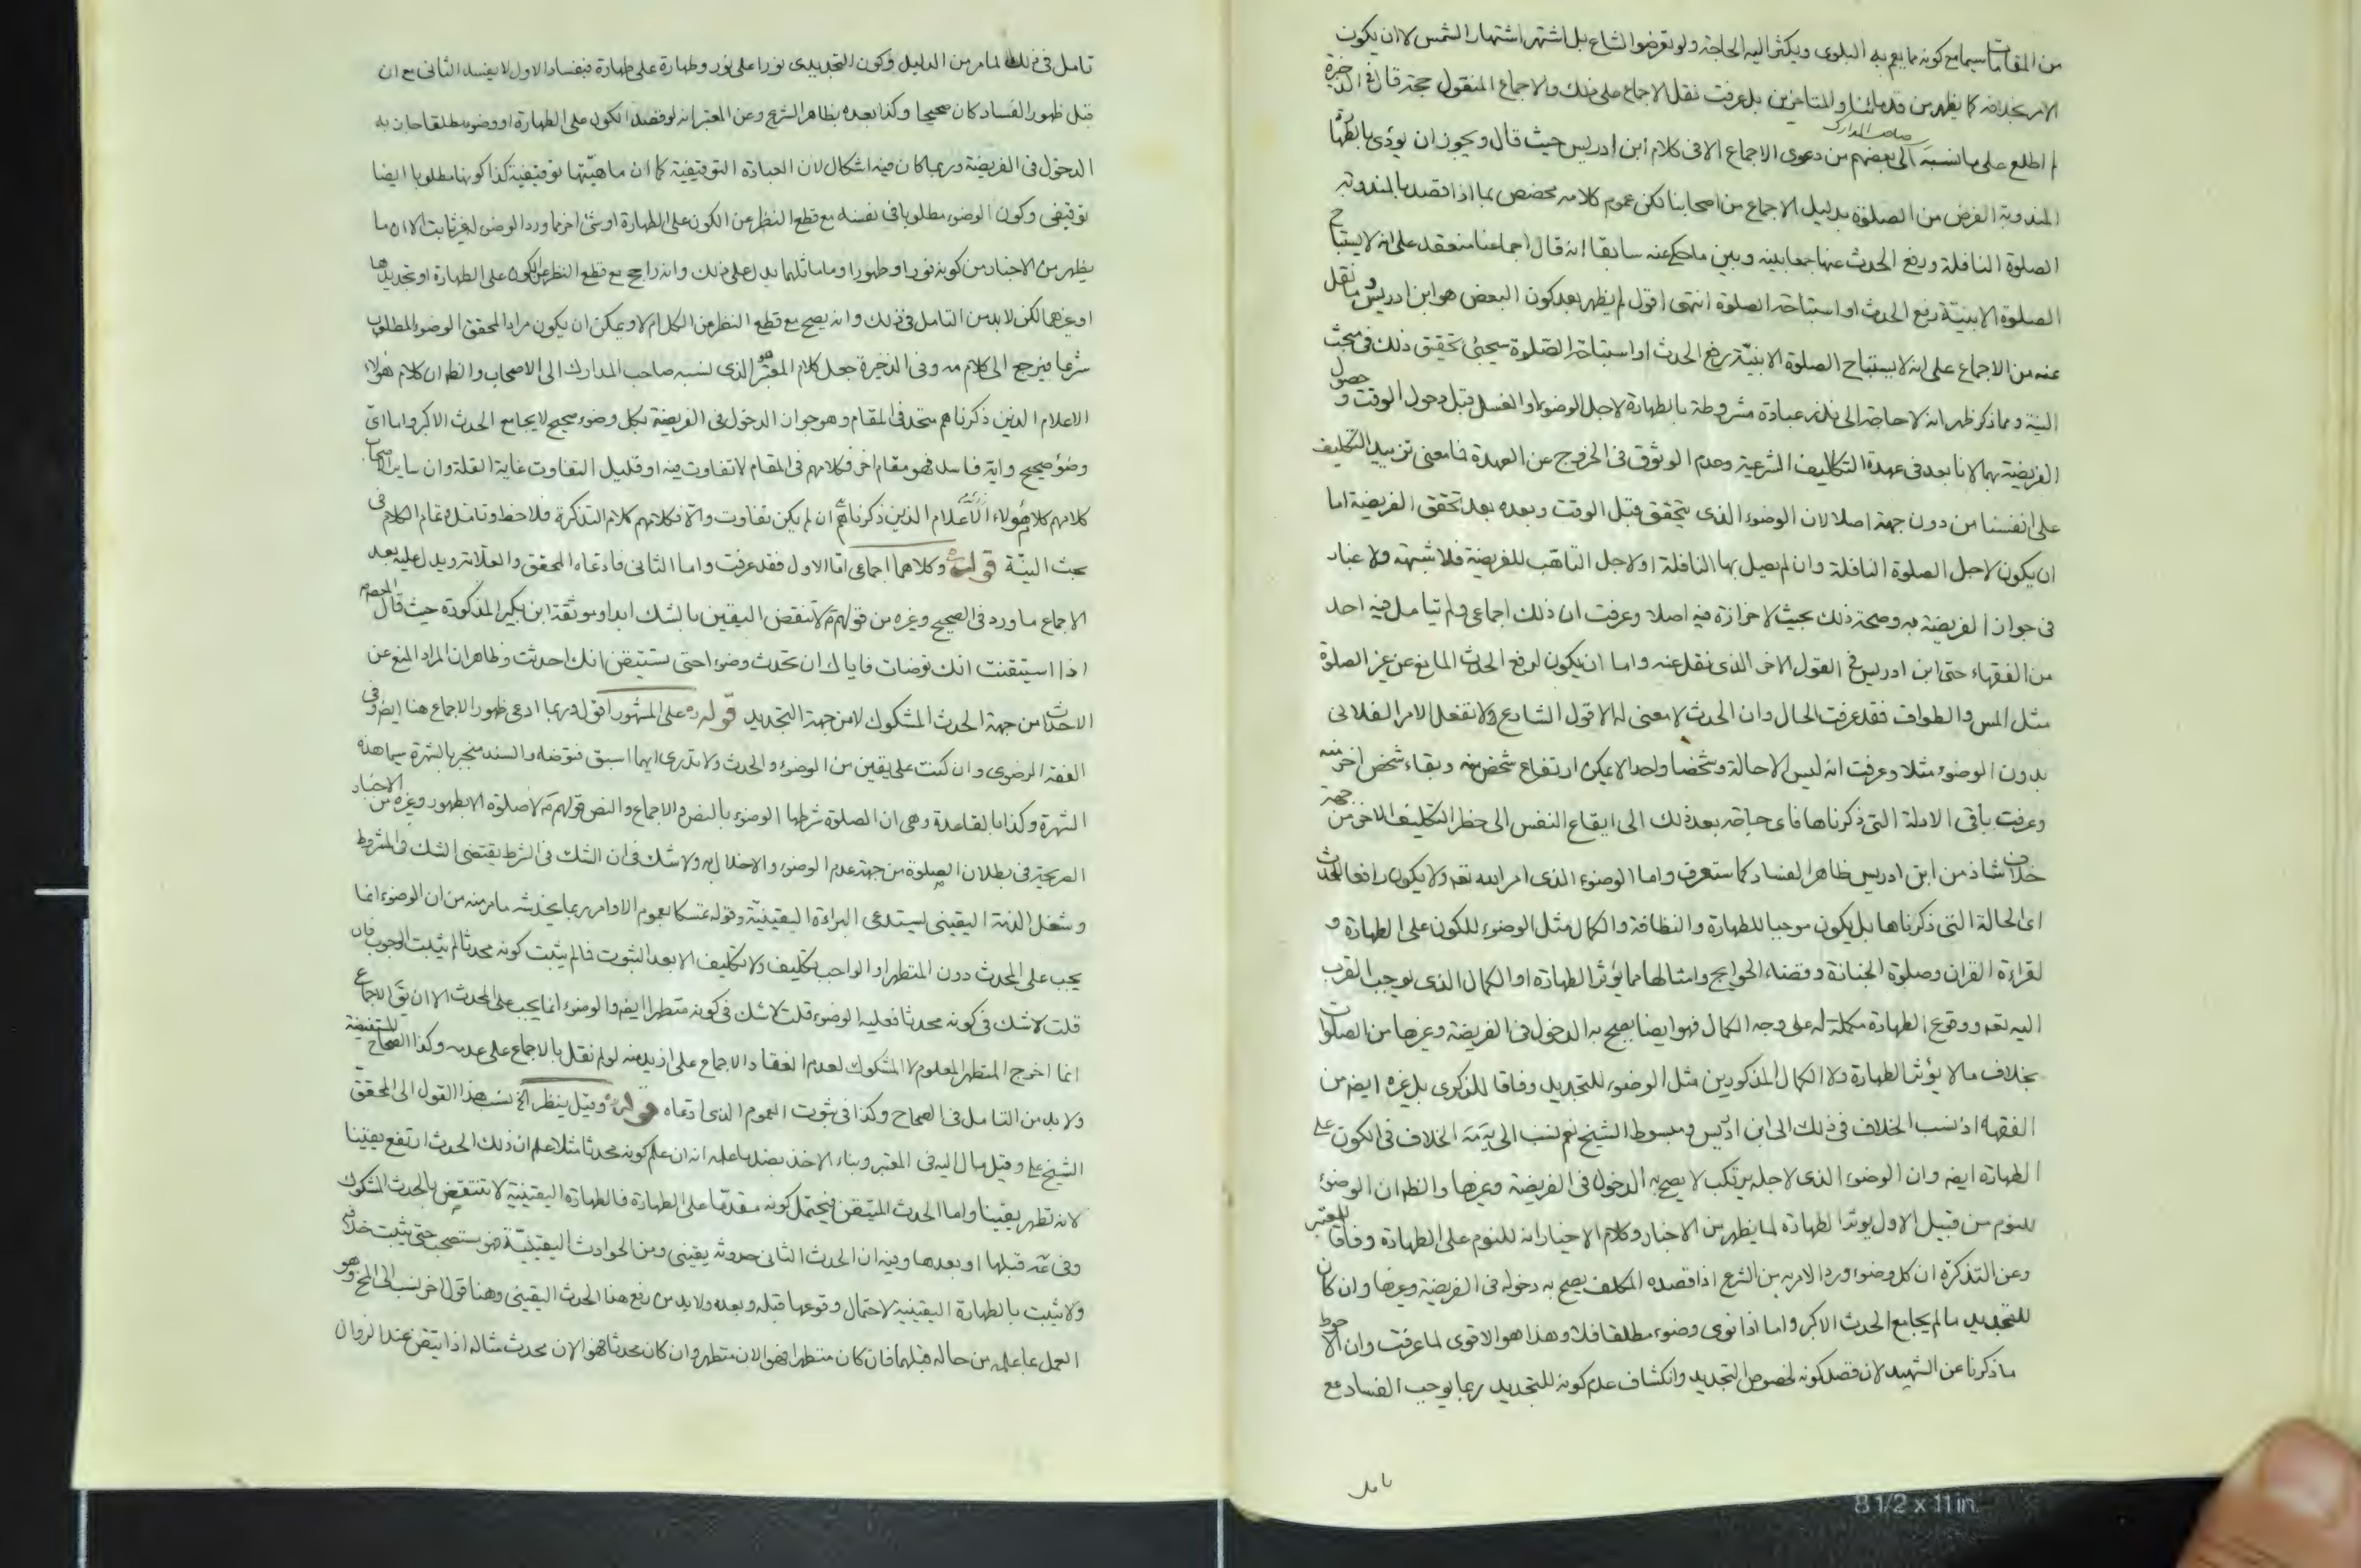 من المقامات سيما مع كونه مما يعم به البلوى ويكثر اليه الحاجة ولو تعرضوا لشاع بل اشتهر اشتهار الشمس لا ان يكون
الامر بخلافه كما يظهر من قدمائنا والمتاخرين بل عرفت نقل الاجماع على ذلك والاجماع المنقول حجة قال في الذخيرة
لم اطلع على ما نسبه صاحب المدارك الى بعضهم من دعوى الاجماع الا في كلام ابن ادريس حيث قال ويجوز ان يؤدى بالطهارة
المندوبة الفرض من الصلوة بدليل الاجماع من اصحابنا لكن عموم كلامه مخصص بما اذا قصد بالمندوبة
الصلوة النافلة ورفع الحدث عنها جمعا بينه وبين ما حكي عنه سابقا انه قال اجماعنا منعقد على انه لا يستباح
الصلوة الا بنية رفع الحدث او استباحة الصلوة انتهى اقول لم يظهر بعد كون البعض هو ابن ادريس وما نقل
عنه من الاجماع على انه لا يستباح الصلوة الا بنية رفع الحدث او استباحة الصلوة سيجئ تحقيق ذلك في مبحث
النية ومما ذكر ظهر انه لا حاجة الى نذر عبادة مشروطة بالطهارة لاجل الوضوء او الغسل قبل دخول الوقت و حصول
الفريضة بهما لانا بعد في عهدة التكاليف الشرعية وعدم الوثوق في الخروج عن العهدة فما معنى تزييد التكليف
على انفسنا من دون جهة اصلا لان الوضوء الذى يتحقق قبل الوقت وبعده بعد تحقق الفريضة اما
ان يكون لاجل الصلوة النافلة وان لم يصل بها النافلة او لاجل التاهب للفريضة فلا شبهة ولا غبار
في جواز الفريضة به وصحة ذلك بحيث لا حزازة فيه اصلا وعرفت ان ذلك اجماعى ولم يتامل فيه احد
من الفقهاء حتى ابن ادريس في القول الاخر الذى نقل عنه واما ان يكون لرفع الحدث المانع عن غير الصلوة
مثل المس والطواف فقد عرفت الحال وان الحدث لا معنى له الا قول الشارع ولا تفعل الامر الفلانى
بدون الوضوء مثلا وعرفت انه ليس الا حالة وشخصا واحدا لا يمكن ارتفاع شخص منه وبقاء شخص اخر منه
وعرفت باقى الادلة التى ذكرناها فاى حاجة بعد ذلك الى ايقاع النفس الى خطر التكليف الاخر من جهة
خلاف شاذ من ابن ادريس ظاهر الفساد كما ستعرف واما الوضوء الذى امر الله تعه ولا يكون رافعا للحدث
اى الحالة التى ذكرناها بل يكون موجبا للطهارة والنظافة والكمال مثل الوضوء للكون على الطهارة و
لقراءة القران وصلوة الجنازة وقضاء الحوايج وامثالها مما يؤثر الطهارة او الكمال الذى يوجب القرب
اليه تعه ووقوع الطهارة مكملة له على وجه الكمال فهو ايضا يصح به الدخول في الفريضة وغيرها من الصلوات
بخلاف ما لا يؤثر الطهارة ولا الكمال المذكورين مثل الوضوء للتجديد وفاقا للذكرى بل غيره ايضه من
الفقهاء اذ نسب الخلاف في ذلك الى ابن ادريس ومبسوط الشيخ نعم نسب الى الخلاف في الكون على
الطهارة ايضه وان الوضوء الذى لاجله يرتكب لا يصح به الدخول في الفريضة وغيرها والظ ان الوضوء
للنوم من قبيل الاول يوثر الطهارة لما يظهر من الاخبار وكلام الاخيار انه للنوم على الطهارة وفاقا للمعتبر
وعن التذكرة ان كل وضوء ورد الامر به من الشرع اذا قصده المكلف يصح به دخوله في الفريضة وغيرها وان كان
للتجديد ما لم يجامع الحدث الاكبر واما اذا نوى وضوء مطلقا فلا وهذا هو الاقوى لما عرفت وان الاحوط
ما ذكرنا عن الشهيد لان قصد كونه لخصوص التجديد وانكشاف عدم كونه للتجديد ربما يوجب الفساد مع
تامل
تامل في ذلك لما مر من الدليل وكون التجديدى نورا على نور وطهارة على طهارة فبفساد الاول لا يفسد الثانى مع ان
قبل ظهور الفساد كان صحيحا وكذا بعده بظاهر الشرع وعن المعتبر انه لو قصد الكون على الطهارة او وضوء مطلقا جاز به
الدخول في الفريضة وربما كان فيه اشكال لان العبادة التوقيفية كما ان ماهيتها توقيفية كذا كونها مطلوبا ايضا
توقيفى وكون الوضوء مطلوبا في نفسه مع قطع النظر عن الكون على الطهارة او شئ اخر مما ورد الوضوء له غير ثابت الا ان ما
يظهر من الاخبار من كونه نورا وطهورا وما ماثلهما يدل على ذلك وانه راجح مع قطع النظر عن الكون على الطهارة او تجديدها
او غيرهما لكن لا بد من التامل في ذلك وانه يصح مع قطع النظر من الكل ام لا ويمكن ان يكون مراد المحقق الوضوء المطلوب
شرعا فيرجع الى كلام مه وفي الذخيرة جعل كلام المعتبر هو الذى نسبه صاحب المدارك الى الاصحاب والظ ان كلام هؤلاء
الاعلام الذين ذكرناهم متحد في المقام وهو جواز الدخول في الفريضة بكل وضوء صحيح لا يجامع الحدث الاكبر واما اى
وضوء صحيح وايه فاسد فهو مقام اخر فكلامهم في المقام لا تفاوت فيه او قليل التفاوت غاية القلة وان ساير الاصحاب
كلامهم كلام هؤلاء الاعلام الذين ذكرناهم ان لم يكن تفاوت والا فكلامهم كلام التذكرة فلاحظ وتامل وتمام الكلام في
بحث النية قوله وكلاهما اجماعى اما الاول فقد عرفت واما الثانى فادعاه المحقق والعلامة ويدل عليه بعد
الاجماع ما ورد في الصحيح وغيره من قولهم ع لا تنقض اليقين بالشك ابدا وموثقة ابن بكير المذكورة حيث قال المعصوم
اذا استيقنت انك توضات فاياك ان تحدث وضوء حتى تستيقن انك احدثت وظاهر ان المراد المنع عن
الاحداث من جهة الحدث المشكوك لا من جهة التجديد قوله على المشهور اقول وربما ادعى ظهور الاجماع هنا ايضه وفي
الفقه الرضوى وان كنت على يقين من الوضوء والحدث ولا تدرى ايهما اسبق فتوضه والسند منجبر بالشهرة سيما هذه
الشهرة وكذا بالقاعدة وهى ان الصلوة شرطها الوضوء بالنص والاجماع والنص قولهم ع لا صلوة الا بطهور وغيره من الاخبار
الصريحة في بطلان الصلوة من جهة عدم الوضوء والاخلال به ولا شك في ان الشك في الشرط يقتضى الشك في المشروط
وشغل الذمة اليقينى يستدعى البراءة اليقينية وقوله تمسكا بعموم الاوامر ربما يخدشه ما مر منه من ان الوضوء انما
يجب على المحدث دون المتطهر اذ الواجب تكليف ولا تكليف الا بعد الثبوت فما لم يثبت كونه محدثا لم يثبت الوجوب فان
قلت لا شك في كونه محدثا فعليه الوضوء قلت لا شك في كونه متطهرا ايضه والوضوء انما يجب على المحدث الا ان يق الاجماع
انما اخرج المتطهر المعلوم لا المشكوك لعدم انعقاد الاجماع على ازيد منه لو لم نقل بالاجماع على عدمه وكذا الصحاح المستفيضة
ولا بد من التامل في الصحاح وكذا في ثبوت العموم الذى ادعاه قوله وقيل ينظر الخ نسب هذا القول الى المحقق
الشيخ على وقيل مال اليه في المعتبر وبناء الاخذ بضد ما علمه انه ان علم كونه محدثا مثلا علم ان ذلك الحدث ارتفع يقينا
لانه تطهر يقينا واما الحدث المتيقن فيحتمل كونه مقدما على الطهارة فالطهارة اليقينية لا تنتقض بالحدث المشكوك
وقوعه قبلها او بعدها وفيه ان الحدث الثانى حدوثه يقينى ومن الحوادث اليقينية فهو مستصحب حتى يثبت خلافه
ولا يثبت بالطهارة اليقينية لاحتمال وقوعها قبله وبعده ولا بد من رفع هذا الحدث اليقينى وهنا قول اخر نسب الى المحقق وهو
العمل بما علمه من حاله قبلهما فان كان متطهرا فهو الان متطهر وان كان محدثا فهو الان محدث مثاله اذا تيقن عند الزوال
8 1/2 x 11 in.